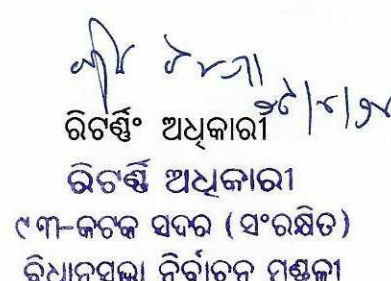 ରିଟର୍ଣ୍ଣିଂ ଅଧିକାରୀ
ରିଟର୍ଣ୍ଣି ଅଧିକାରୀ
୯୩-କଟକ ସଦର (ସଂରକ୍ଷିତ)
ବିଧାନସଭା ନିର୍ବାଚନ ମଣ୍ଡଳୀ